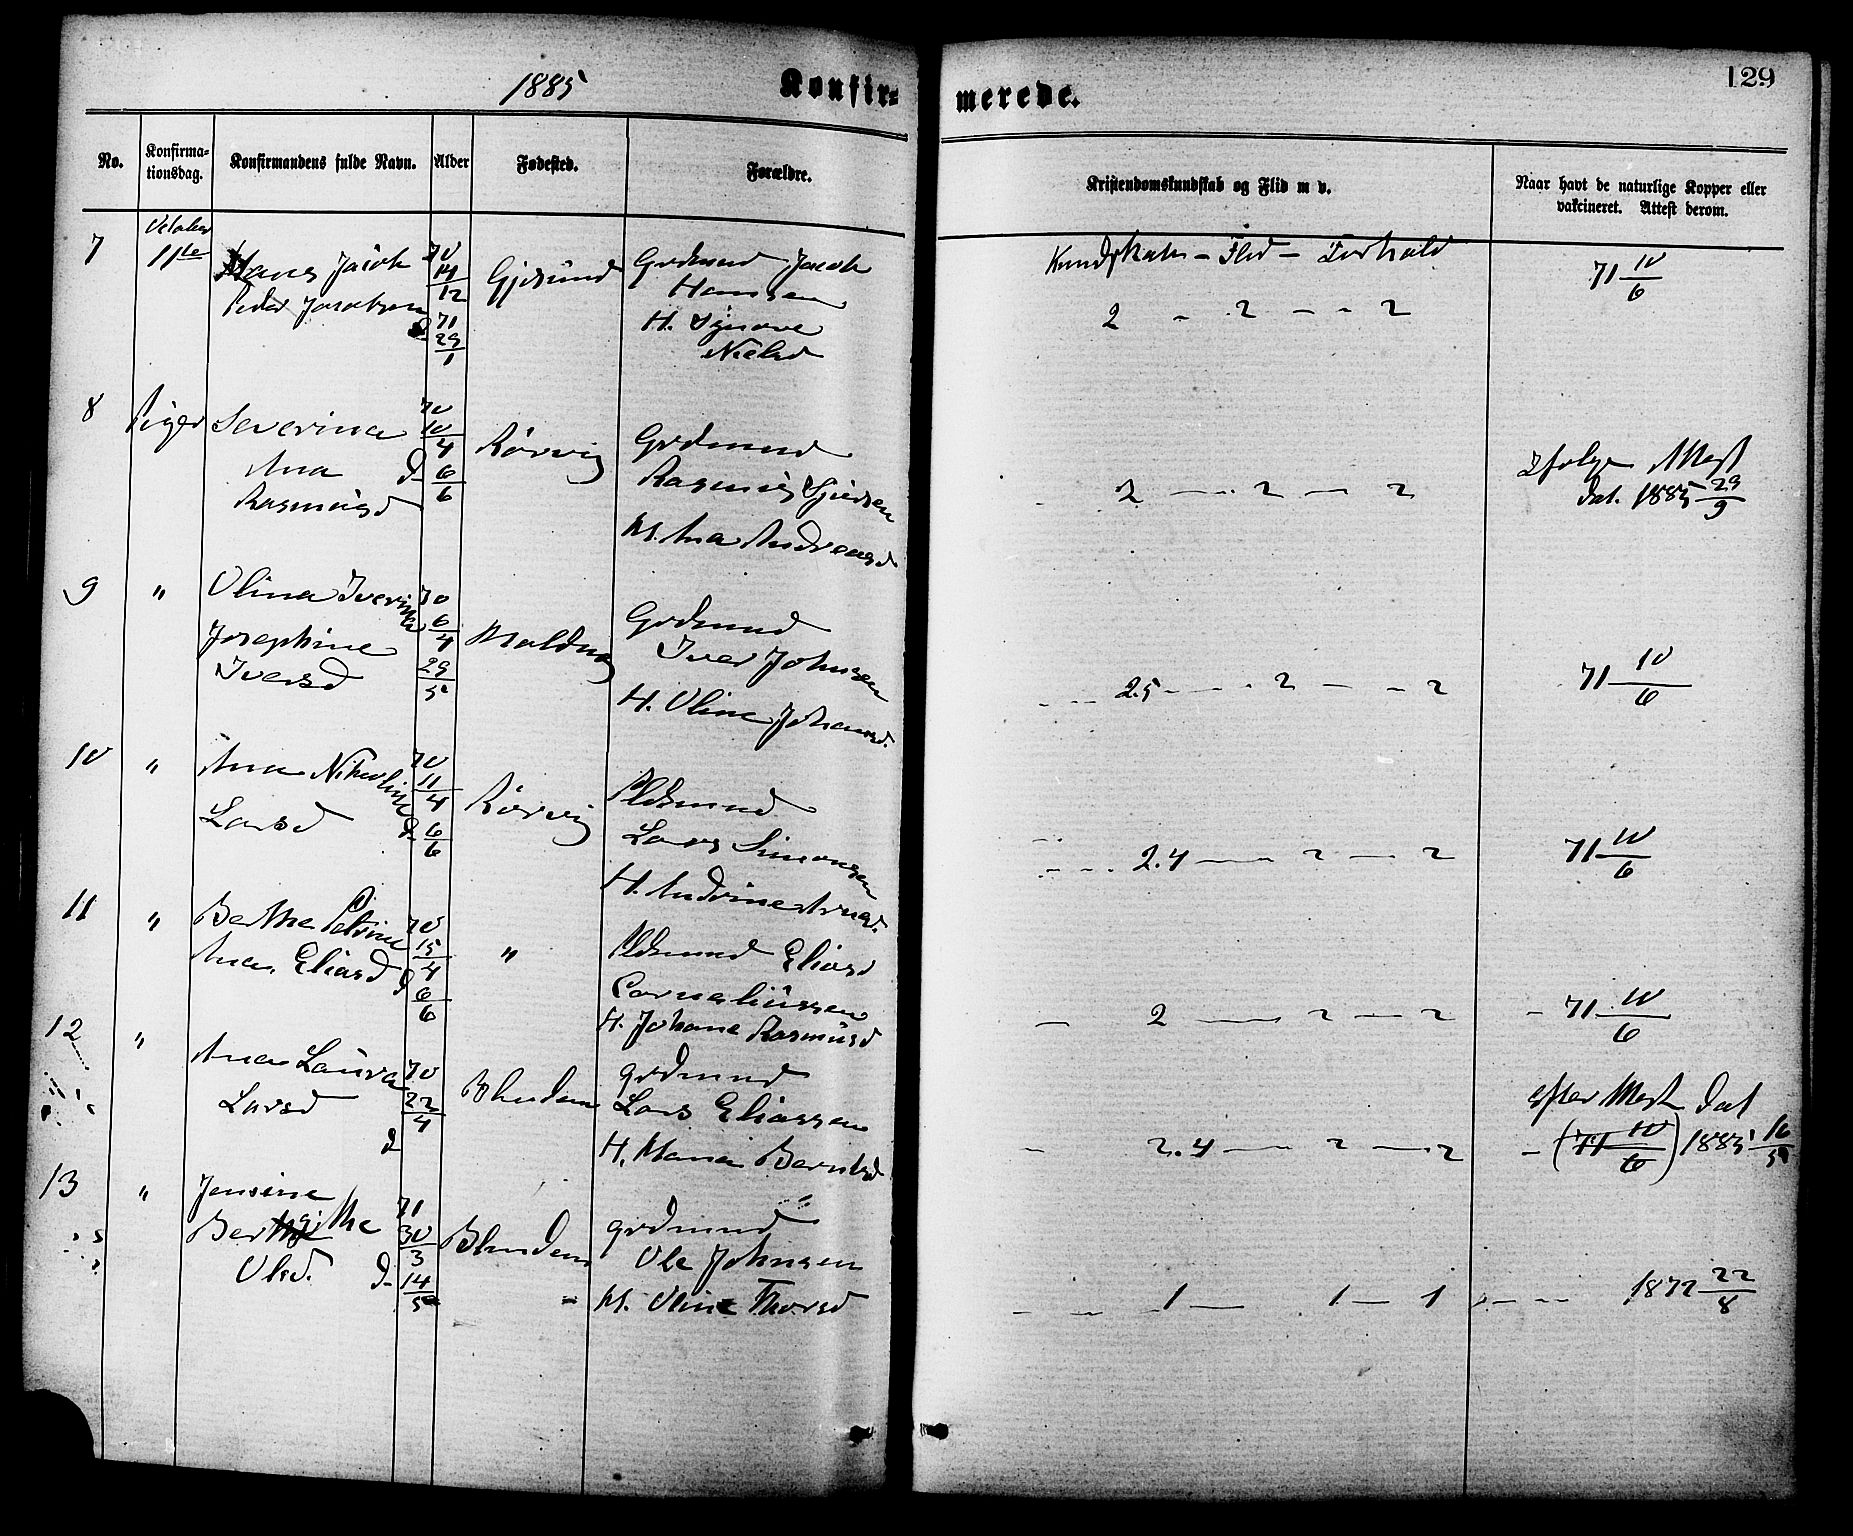 1885 Konfir=
merede. 129
No. Konfirma-tionsdag. Konfirmandens fulde Navn. Alder Fødested. Forældre.
Kristendomskundskab og Flid m v. Naar havt de naturlige Kopper eller vakcineret. Attest derom.
October
7 11te Hans Jacob 70 14/12 Gjøsund Grdmand Jacob
Peder Jacobsen d 71 29/1 Hansen
H. Synove
Nielsd
Kundskab - Flid - Forhold
2 - 2 - - 2 71 10/6
8 Piger Severina 70 10/4 Rørvig Grdmand
Ana d 6/6 Rasmus
Rasmusd
M. Ana Andreasd
2 - 2 - 2 Ifølge Attest
dat. 1885 29/9
9 " Olina Iverikka 70 6/4 Grdmand
Josephine Iver Johnsen
Iversd 29/5
H. Oline Johansd.
2.5 - 2 - 2 71 10/6
10 " Ana Nikoline 70 11/4 Rørvig Pldsmand
Larsd d 6/6 Lars Simonsen
H. Andrine
2.4 - 2 - 2 71 10/6
11 " Berthe Petrine 70 15/4 " Pldsmand Elias
Ana Eliasd d 6/6 Corneliussen
H. Johane Rasmusd
2 - 2 - 2 - 71 10/6
12 " Ana Laura 70 22/4 Blindem grdmand
Larsd Lars Eliassen
d H. Maria Berntsd
efter Attest dat
2.4 - 2 - 2 - (71 10/6) 1885 16/5
13 " Jensine 71 30/3 Blindem grdmand
Bergithe Ole Johnsen
Olsd. d 14/5 M. Oline Thorsd
1 - 1 - 1 - 1872 22/8